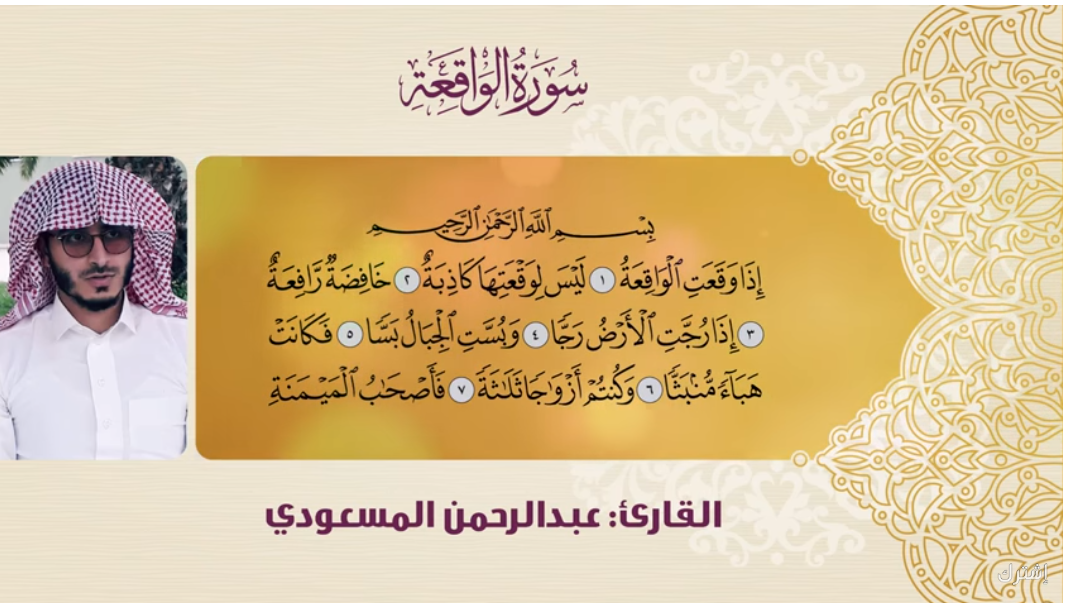 سُورَةُ الوَاقِعَةِ
بِسْمِ ٱللَّهِ ٱلرَّحْمَٰنِ ٱلرَّحِيمِ
إِذَا وَقَعَتِ ٱلْوَاقِعَةُ ١ لَيْسَ لِوَقْعَتِهَا كَاذِبَةٌ ٢ خَافِضَةٌ رَّافِعَةٌ
٣ إِذَا رُجَّتِ ٱلْأَرْضُ رَجًّا ٤ وَبُسَّتِ ٱلْجِبَالُ بَسًّا ٥ فَكَانَتْ
هَبَآءً مُّنۢبَثًّا ٦ وَكُنتُمْ أَزْوَٰجًا ثَلَٰثَةً ٧ فَأَصْحَٰبُ ٱلْمَيْمَنَةِ
القارئ: عبدالرحمن المسعودي
إشترك